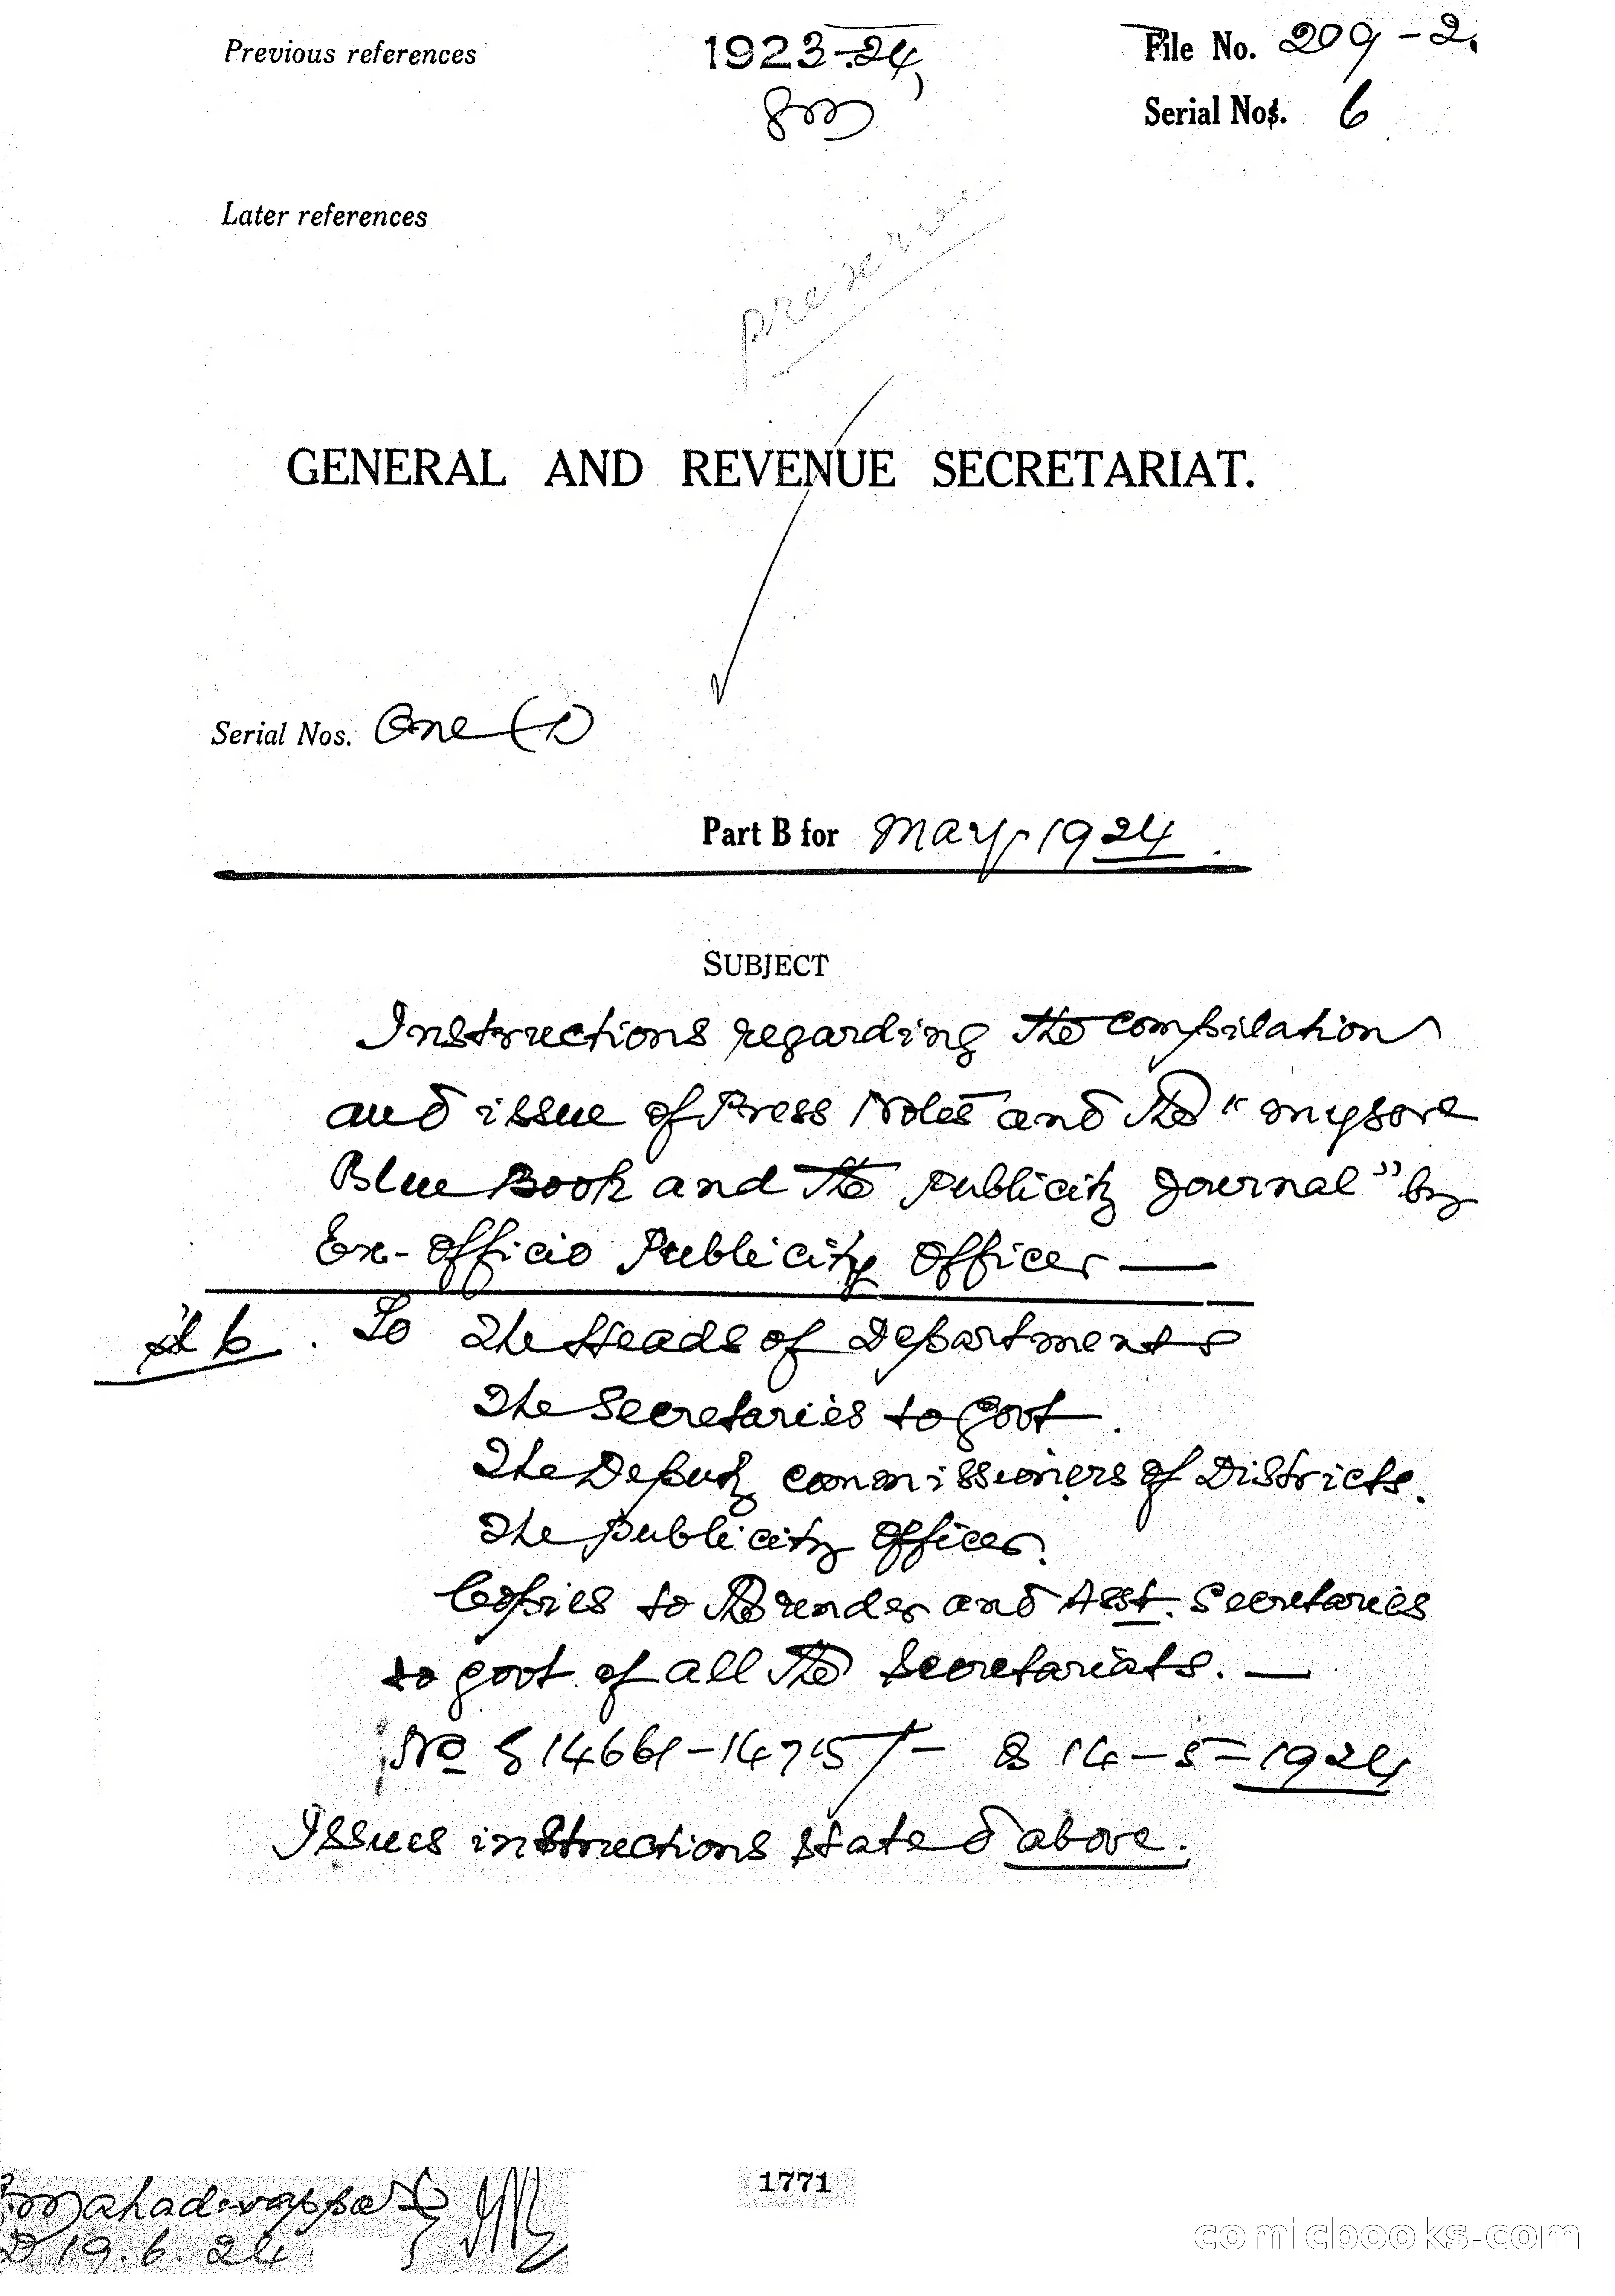 Previous references
1923-24,
File No. 209-2.
Serial Nos. 6
Later references
preserve
GENERAL AND REVENUE SECRETARIAT.
Serial Nos. One (1)
Part B for May 1924.
SUBJECT
Instructions regarding the compilation
and issue of Press Notes and the "Mysore
Blue Book and the Publicity Journal" by
Ex-officio Publicity Officer —
6. To The Heads of Departments
The Secretaries to Govt.
The Deputy Commissioners of Districts.
The Publicity Officer.
Copies to the under and Asst. Secretaries
to govt. of all the Secretariats. —
No 14661-14715/- 14-5-1924
Issues instructions stated above.
1771
Mahadevappa
D 19.6.24
comicbooks.com